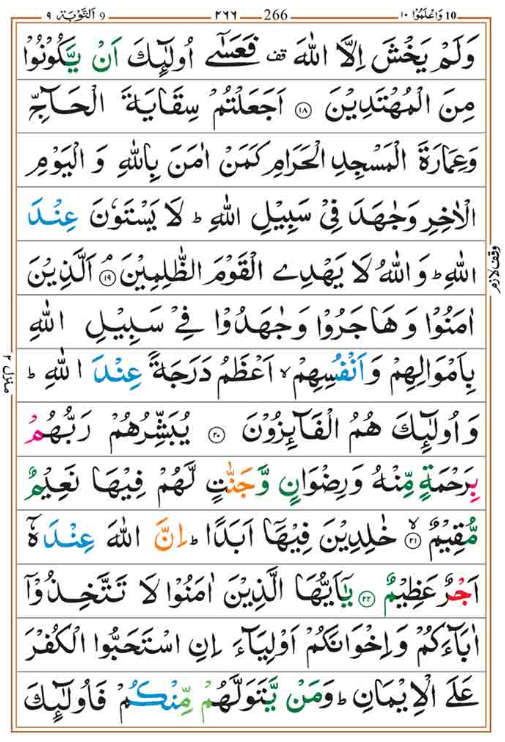 10 وَاعْلَمُوْۤا ١٠ 266 ٢٦٦ 9 اَلتَّوْبَة ٩
وَلَمْ يَخْشَ اِلَّا اللّٰهَ قف فَعَسٰٓى اُولٰٓئِكَ اَنْ يَّكُوْنُوْا
مِنَ الْمُهْتَدِيْنَ ۝۱۸ اَجَعَلْتُمْ سِقَايَةَ الْحَآجِّ
وَعِمَارَةَ الْمَسْجِدِ الْحَرَامِ كَمَنْ اٰمَنَ بِاللّٰهِ وَ الْيَوْمِ
الْاٰخِرِ وَجٰهَدَ فِيْ سَبِيْلِ اللّٰهِ ؕ لَا يَسْتَوٗنَ عِنْدَ
اللّٰهِ ؕ وَ اللّٰهُ لَا يَهْدِى الْقَوْمَ الظّٰلِمِيْنَ ۝۱۹ ۘ اَلَّذِيْنَ
وقف لازم
اٰمَنُوْا وَ هَاجَرُوْا وَ جٰهَدُوْا فِيْ سَبِيْلِ اللّٰهِ
بِاَمْوَالِهِمْ وَ اَنْفُسِهِمْ ۙ اَعْظَمُ دَرَجَةً عِنْدَ اللّٰهِ ؕ
منزل ٢
وَ اُولٰٓئِكَ هُمُ الْفَآئِزُوْنَ ۝۲۰ يُبَشِّرُهُمْ رَبُّهُمْ
بِرَحْمَةٍ مِّنْهُ وَ رِضْوَانٍ وَّ جَنّٰتٍ لَّهُمْ فِيْهَا نَعِيْمٌ
مُّقِيْمٌ ۝۲۱ ۙ خٰلِدِيْنَ فِيْهَاۤ اَبَدًا ؕ اِنَّ اللّٰهَ عِنْدَهٗۤ
اَجْرٌ عَظِيْمٌ ۝۲۲ يٰۤاَيُّهَا الَّذِيْنَ اٰمَنُوْا لَا تَتَّخِذُوْۤا
اٰبَآءَكُمْ وَ اِخْوَانَكُمْ اَوْلِيَآءَ اِنِ اسْتَحَبُّوا الْكُفْرَ
عَلَى الْاِيْمَانِ ؕ وَ مَنْ يَّتَوَلَّهُمْ مِّنْكُمْ فَاُولٰٓئِكَ